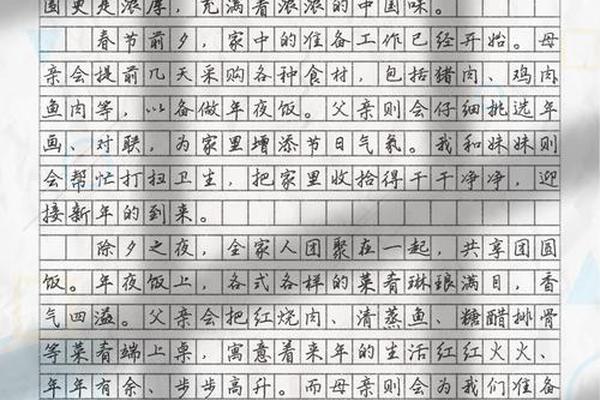 围更是浓厚，充满着浓浓的中国味。
春节前夕，家中的准备工作已经开始。母
亲会提前几天采购各种食材，包括猪肉、鸡肉
鱼肉等，以备做年夜饭。父亲则会仔细挑选年
画、对联，为家里增添节日气氛。我和妹妹则
会帮忙打扫卫生，把家里收拾得干干净净，迎
接新年的到来。
除夕之夜，全家人团聚在一起，共享团圆
饭。年夜饭上，各式各样的菜肴琳琅满目，香
气四溢。父亲会把红烧肉、清蒸鱼、糖醋排骨
等菜肴端上桌，寓意着来年的生活红红火火、
年年有余、步步高升。而母亲则会为我们准备